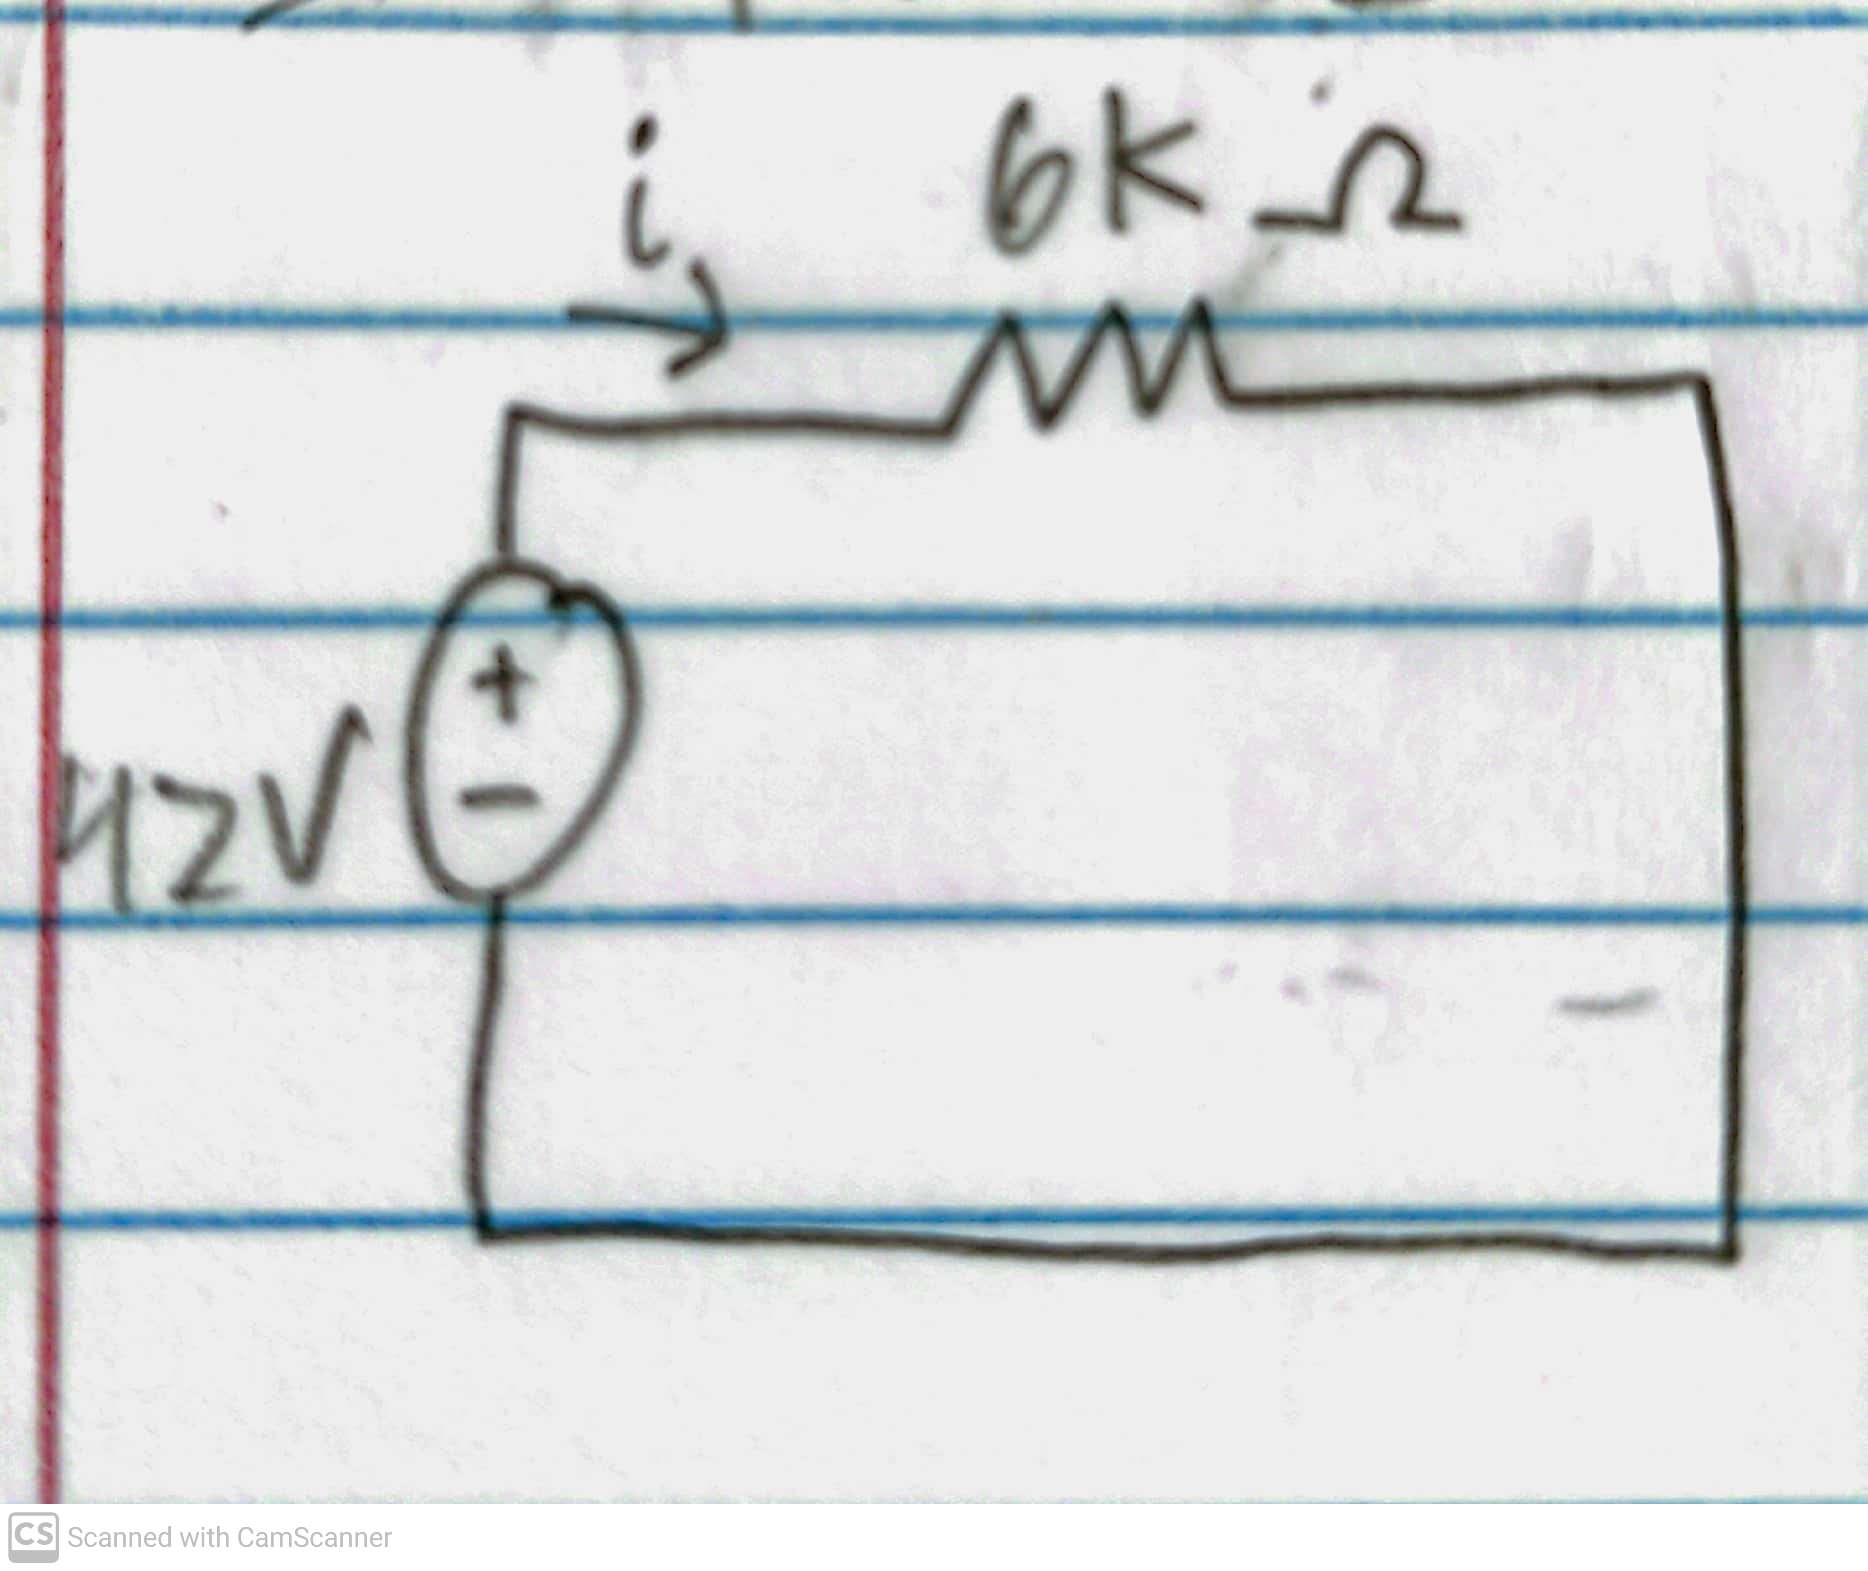 i
6K Ω
+
-
42V
CS Scanned with CamScanner